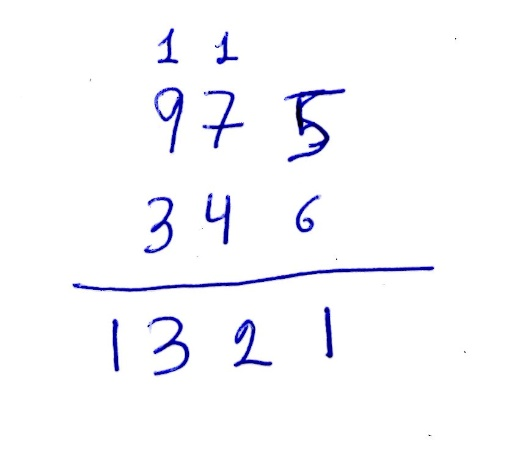 1 1
97 5
34 6
132 1